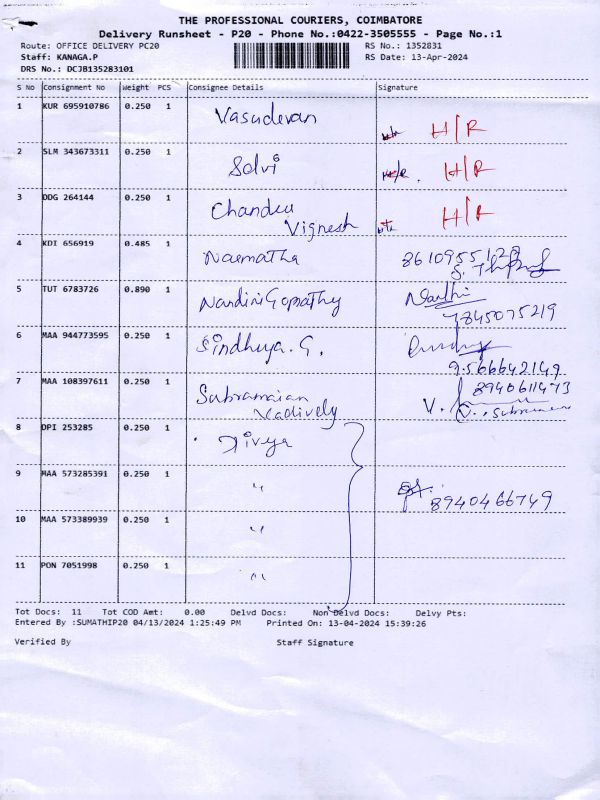 THE PROFESSIONAL COURIERS, COIMBATORE
Delivery Runsheet - P20 - Phone No.:0422-3505555 - Page No.:1
Route: OFFICE DELIVERY PC20 RS No.: 1352831
Staff: KANAGA.P RS Date: 13-Apr-2024
DRS No.: DCJB135283101
S No Consignment No Weight PCS Consignee Details Signature
1 KUR 695910786 0.250 1 Vasudevan H/R
2 SLM 343673311 0.250 1 Selvi H/R
3 DDG 264144 0.250 1 Chandru Vignesh H/R
4 KDI 656919 0.485 1 Naematha
5 TUT 6783726 0.890 1 Nandini Gomathy
7845075219
6 MAA 944773595 0.250 1 Sindhuya. G.
9566642149
7 MAA 108397611 0.250 1 Subramaian Vadively 8940611473
V. Subramani
8 DPI 253285 0.250 1 Divya
9 MAA 573285391 0.250 1 " 8940466749
10 MAA 573389939 0.250 1 "
11 PON 7051998 0.250 1 "
Tot Docs: 11 Tot COD Amt: 0.00 Delvd Docs: Non Delvd Docs: Delvy Pts:
Entered By :SUMATHIP20 04/13/2024 1:25:49 PM Printed On: 13-04-2024 15:39:26
Verified By Staff Signature